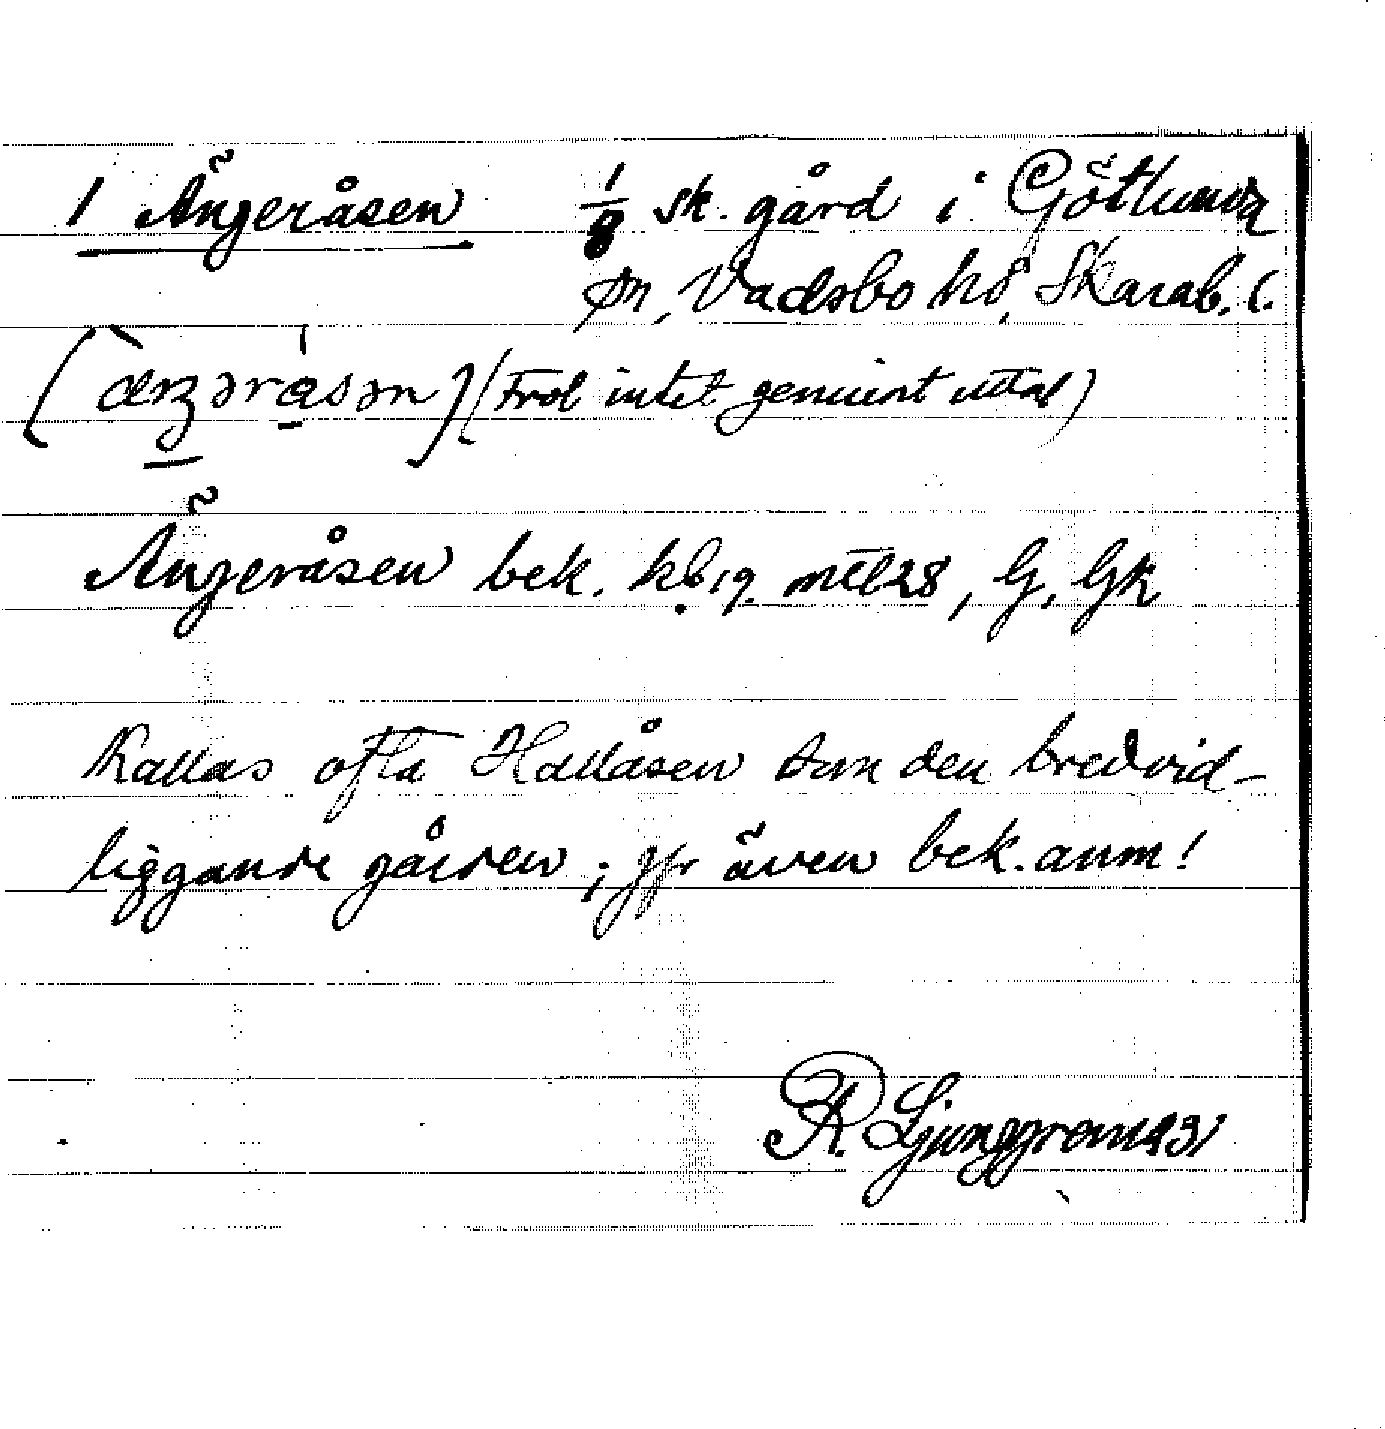 1 Ängeråsen 1/8 sk. gård i Götlunda
sn, Vadsbo hd, Skarab. l.
(Trol intet genuint uttal)
Ängeråsen bek. kb 19. mtl 28, G, Gk
Kallas ofta Hallåsen som den bredvid-
liggande gården; jfr även bek. anm!
R. Ljunggren 1931